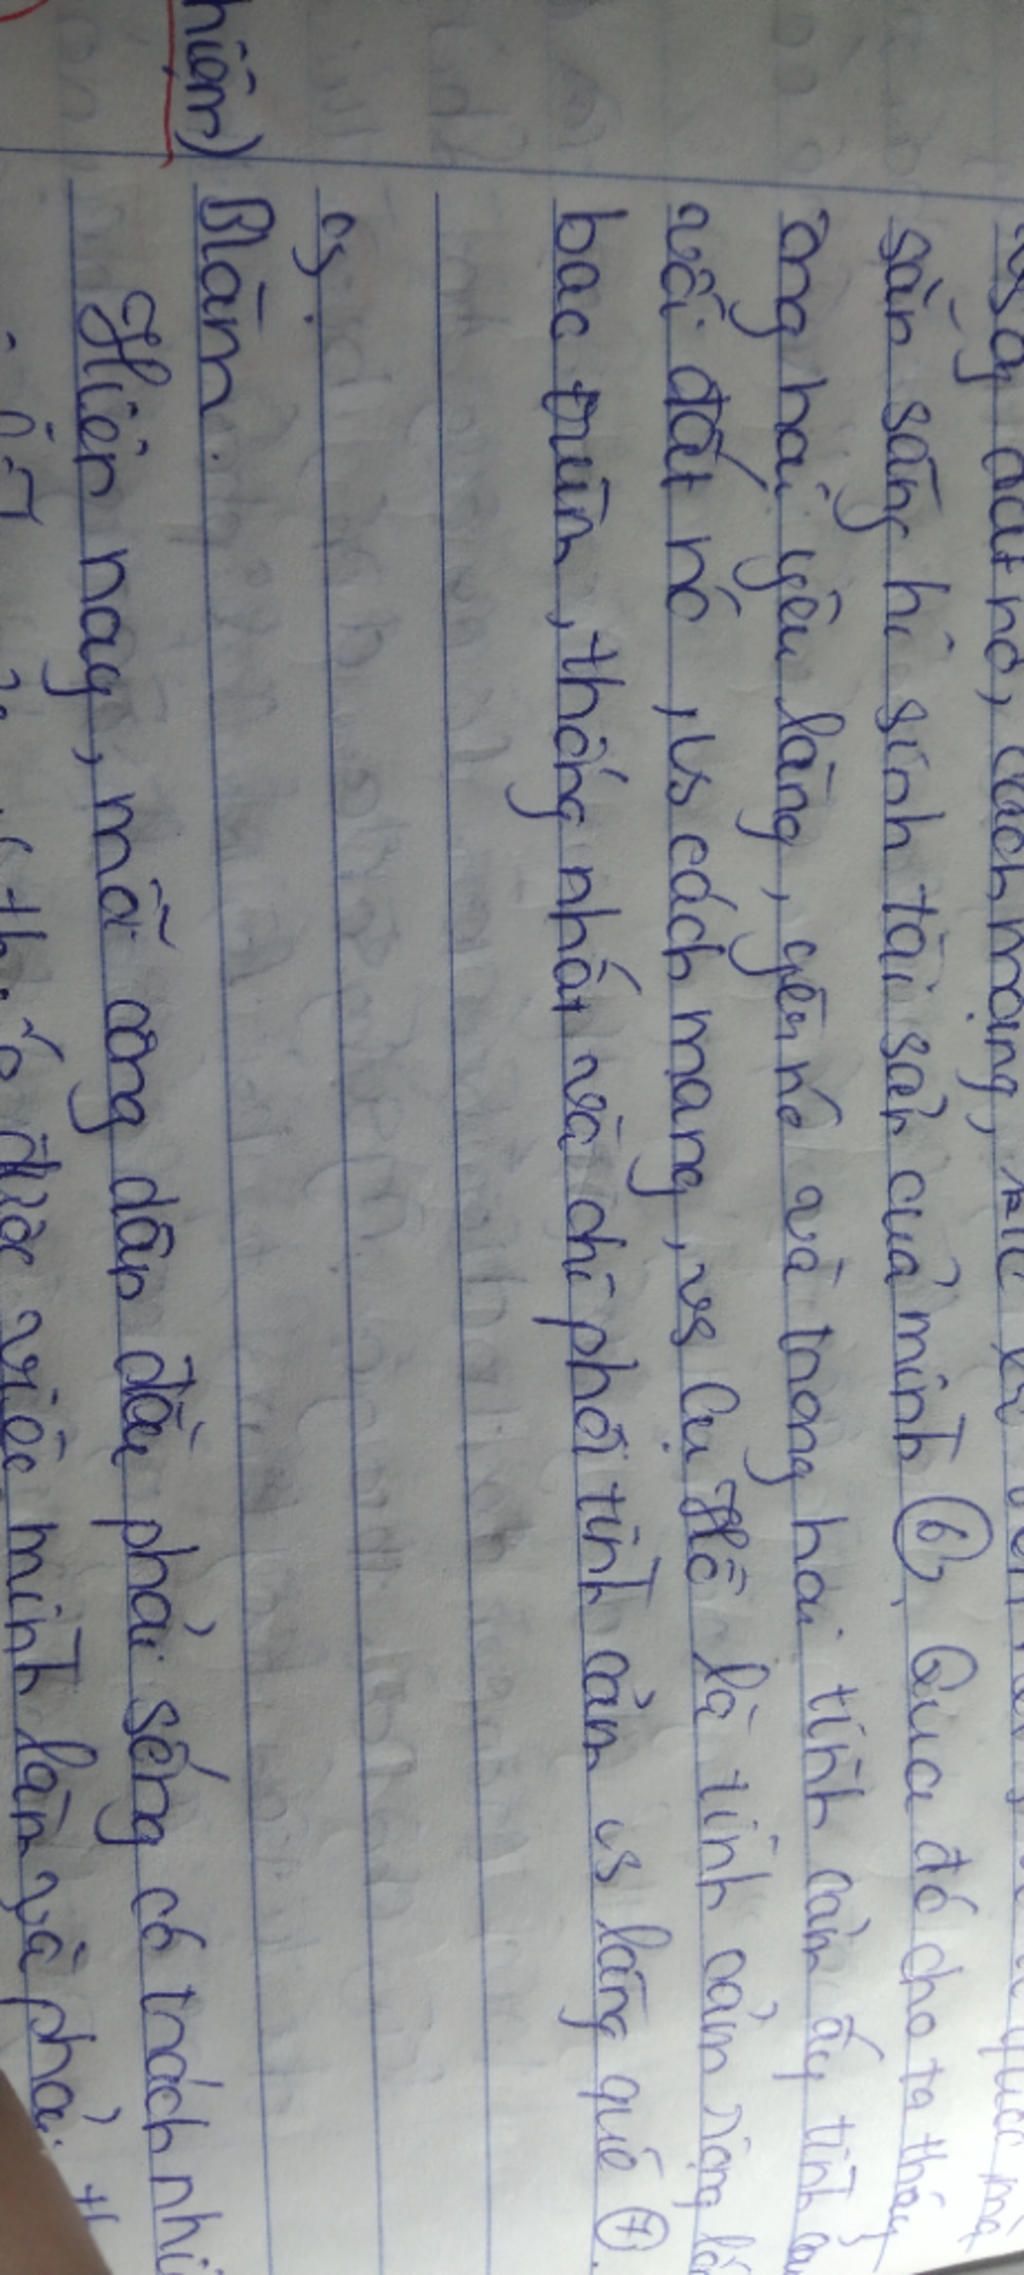 đất nớc, cách mạng,
sẵn sàng hi sinh tài sản của mình ⑥, Qua đó cho ta thấy
ông hai yêu làng, yêu nớc và trong hai tình cảm ấy tình
với đất nớc, vs cách mang, vs Cụ Hồ là tình cảm rộng
bao trùm, thống nhất và chi phối tình cảm vs làng quê ⑦.
vs.
hiệm) Blàm.
Hiện nay, mỗi công dân đều phải sống có trách
đực việc mình làm và phải